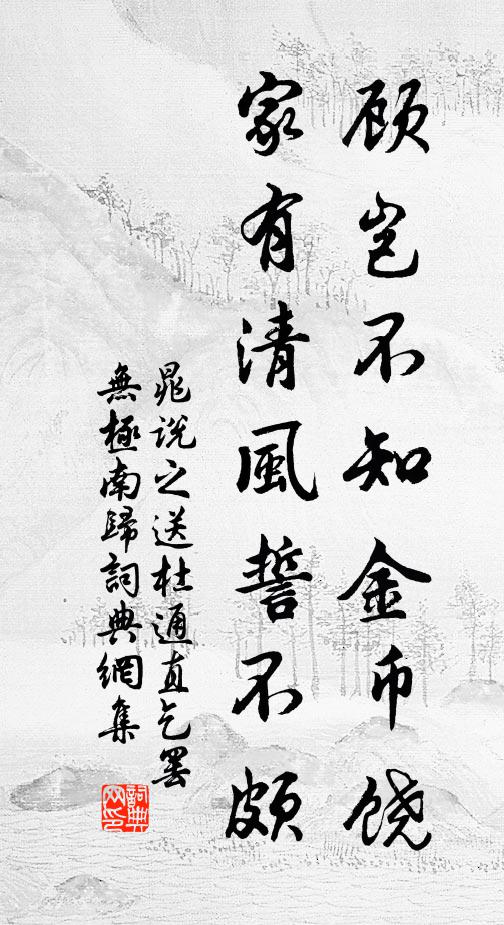 顾岂不知金币饶
家有清風誓不颇
晁說之送杜通直乞罢
無極南歸詞典網集
詞典网印